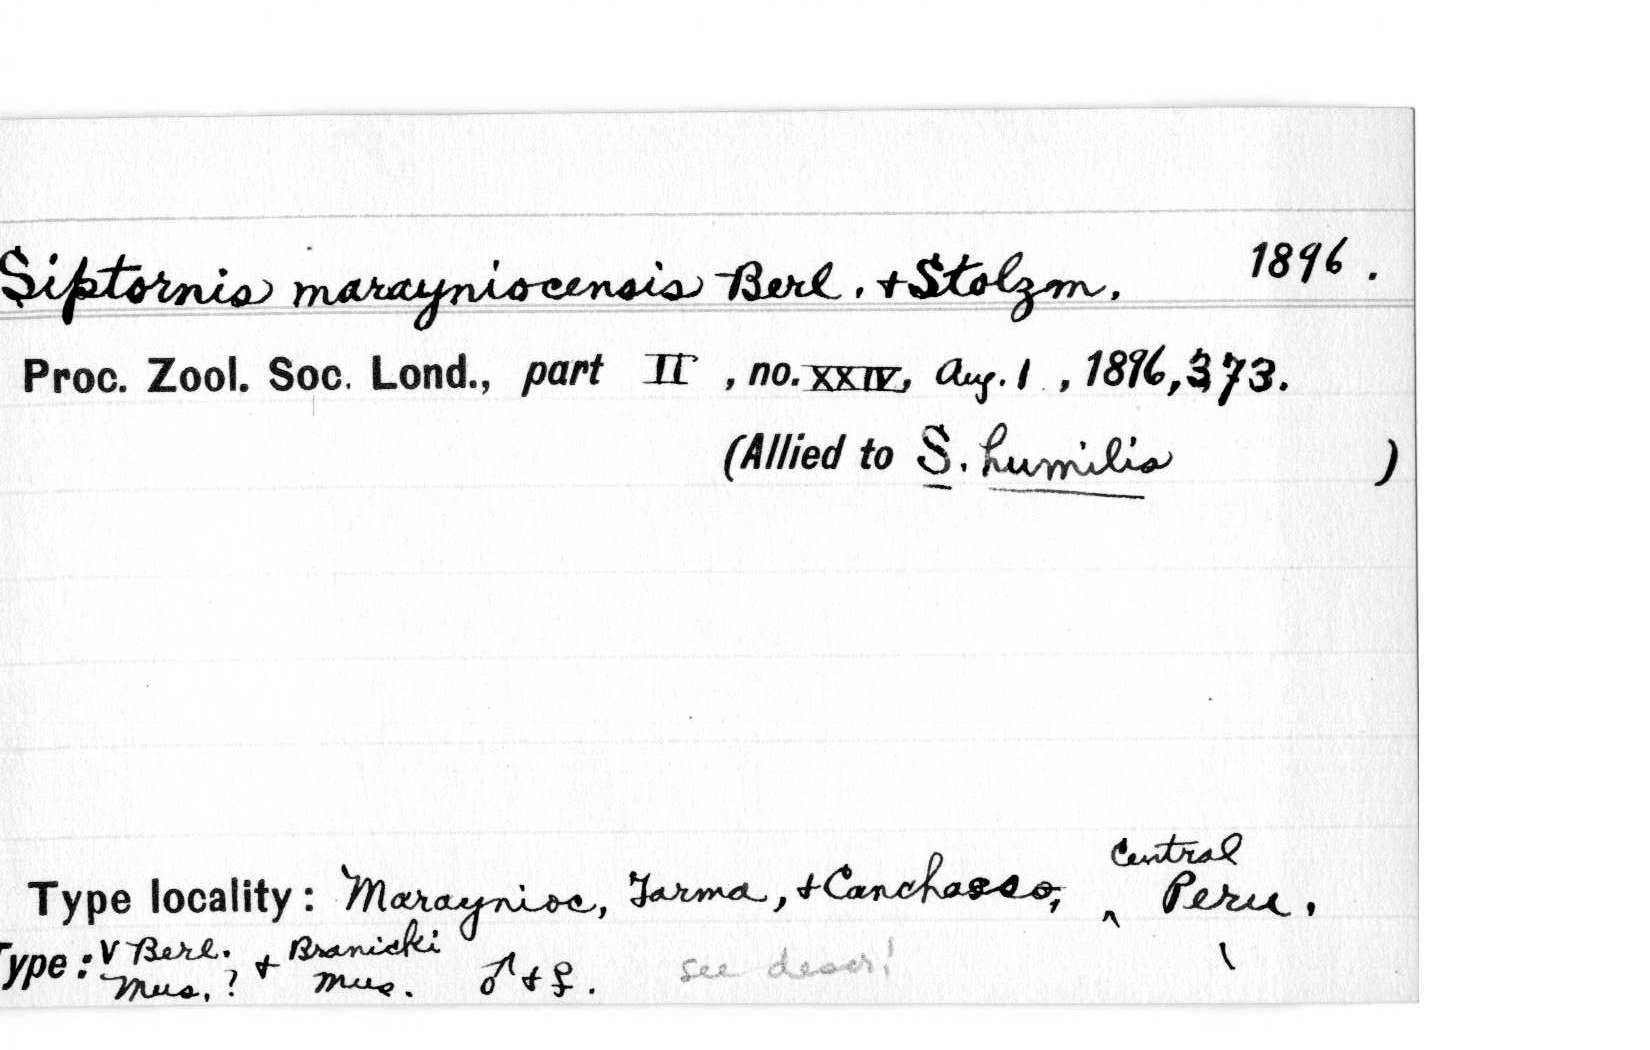 Siptornis marayniocensis Berl. + Stolzm. 1896.
Proc. Zool. Soc. Lond., part II, no. XXIV, Aug. 1, 1896, 373.
(Allied to S. humilis )
Central
Type locality: Maraynioc, Tarma, + Canchacso, ^ Peru.
Type: V Berl. + Branicki
Mus. ? Mus. ♂ + ♀. see descr!